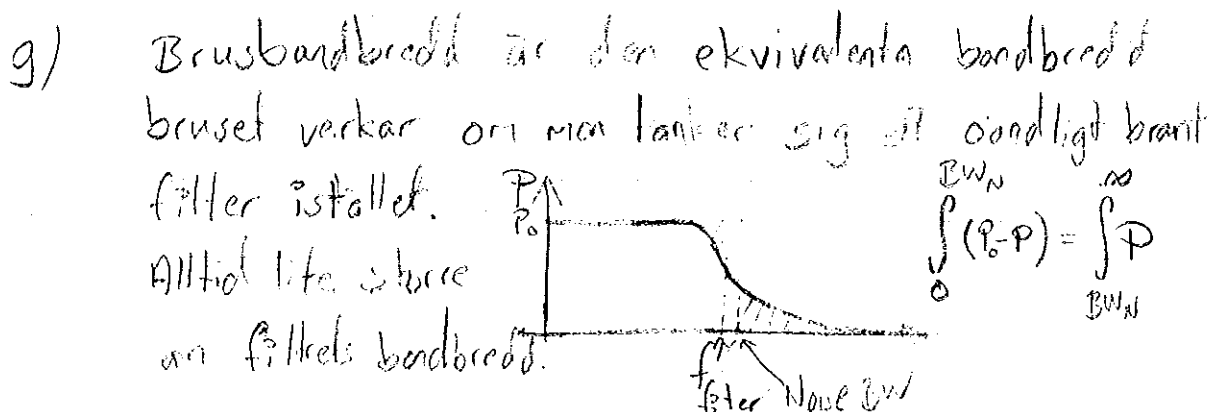 g) Brusbandbredd är den ekvivalenta bandbredd
bruset verkar om man tänker sig ett oändligt brant
filter istället.
Alltid lite större
än filtrets bandbredd.
P
P₀
f filter Noise BW
∫₀^{BW_N} (P₀-P) = ∫_{BW_N}^∞ P